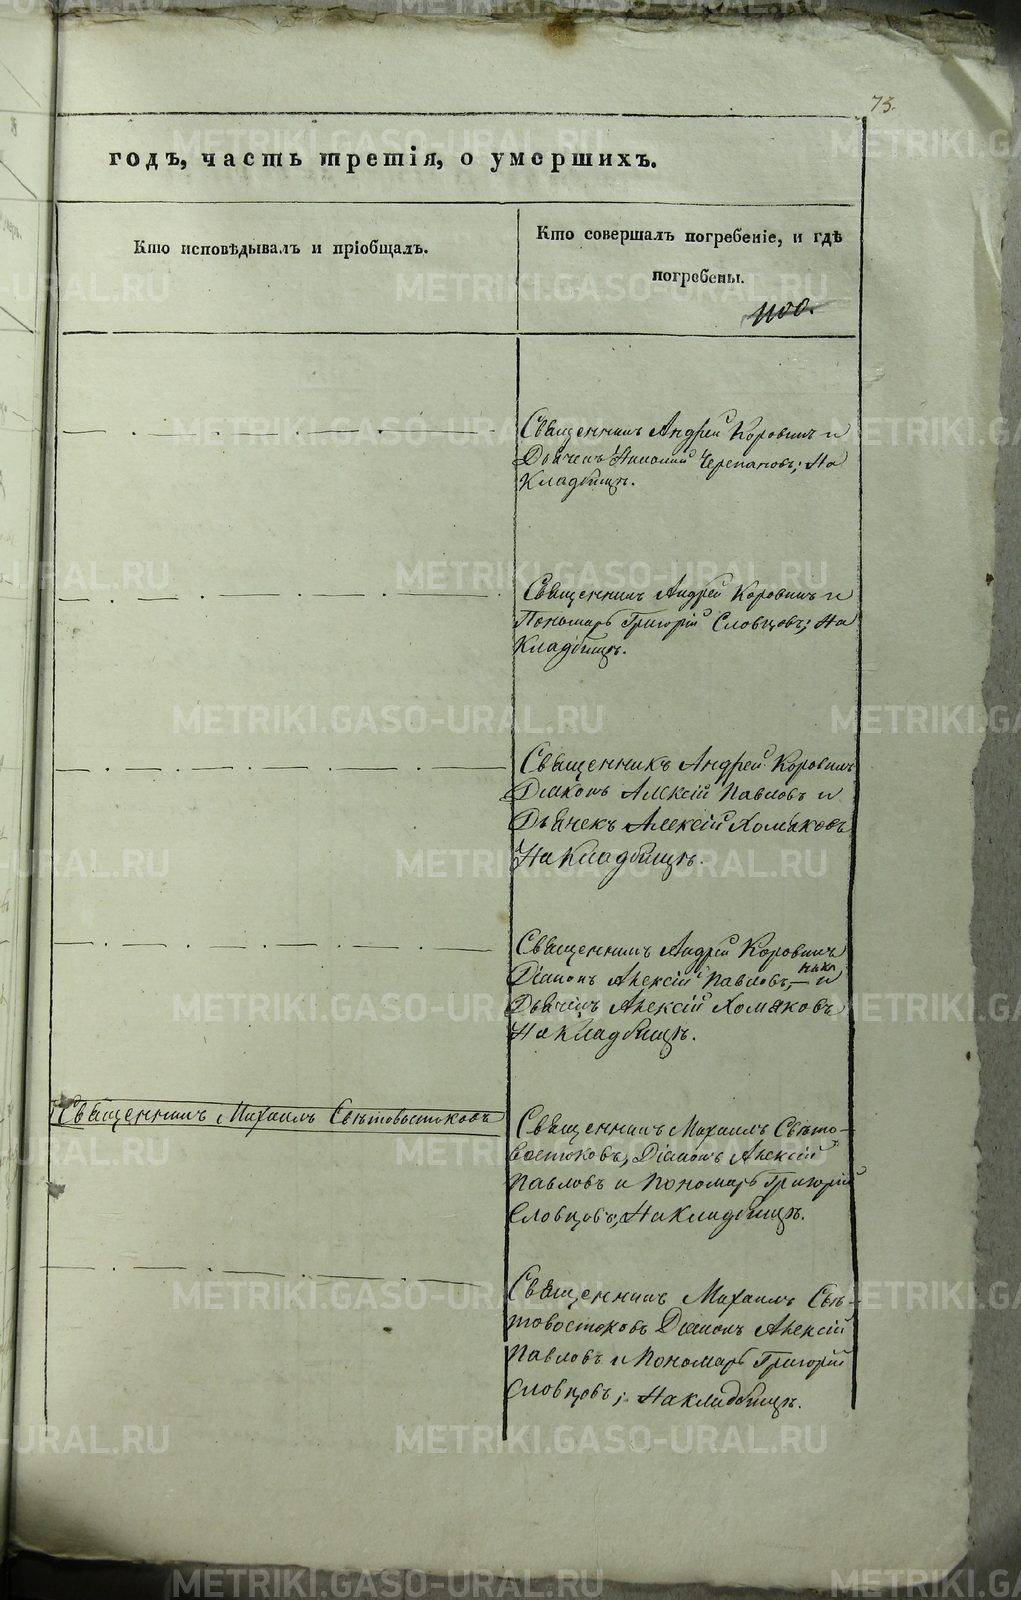 73.
годъ, часть третія, о умершихъ.
Кто исповѣдывалъ и пріобщалъ.
Кто совершалъ погребеніе, и гдѣ
погребены.
Священникъ Андрей Коровинъ и
Дьячекъ Николай Черепановъ; На
Кладбищѣ.
Священникъ Андрей Коровинъ и
Пономарь Григорій Словцовъ; На
Кладбищѣ.
Священникъ Андрей Коровинъ
Діаконъ Алексій Павловъ и
Дьячекъ Алексій Хомяковъ
На Кладбищѣ.
Священникъ Андрей Коровинъ
Діаконъ Алексій Павловъ, и
Дьячекъ Алексій Хомяковъ
На Кладбищѣ.
Священникъ Михаилъ Свѣтовостоковъ
Священникъ Михаилъ Свѣто-
востоковъ, Діаконъ Алексій
Павловъ и Пономарь Григорій
Словцовъ; На Кладбищѣ.
Священникъ Михаилъ Свѣ-
товостоковъ Діаконъ Алексій
Павловъ и Пономарь Григорій
Словцовъ; На кладбищѣ.
METRIKI.GASO-URAL.RU